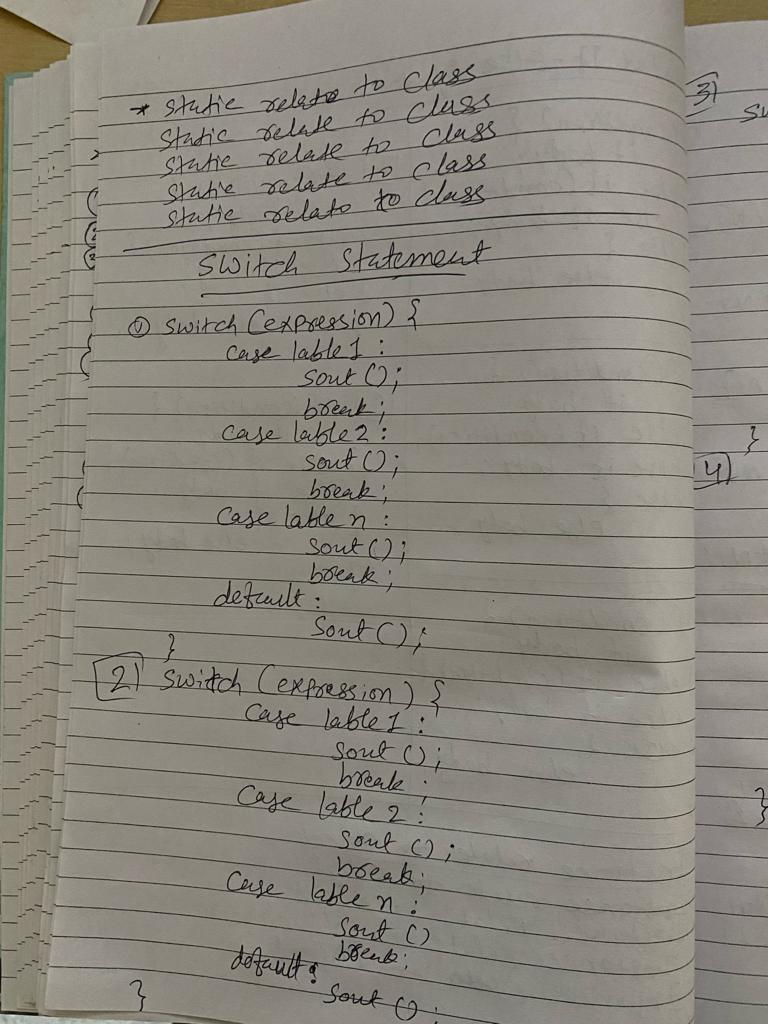 * Static relate to Class
Static relate to Class
Static relate to Class
Static relate to Class
Static relate to Class
Switch Statement
① Switch (expression) {
Case lable1 :
Sout ();
break;
Case lable2 :
Sout ();
break;
Case lable n :
Sout ();
break;
default :
Sout ();
}
2) Switch (expression) {
Case lable1 :
Sout ();
break ;
Case lable 2 :
Sout () ;
break;
Case lable n :
Sout ()
break;
default :
Sout () ;
}
3)
Sw
}
4)
}